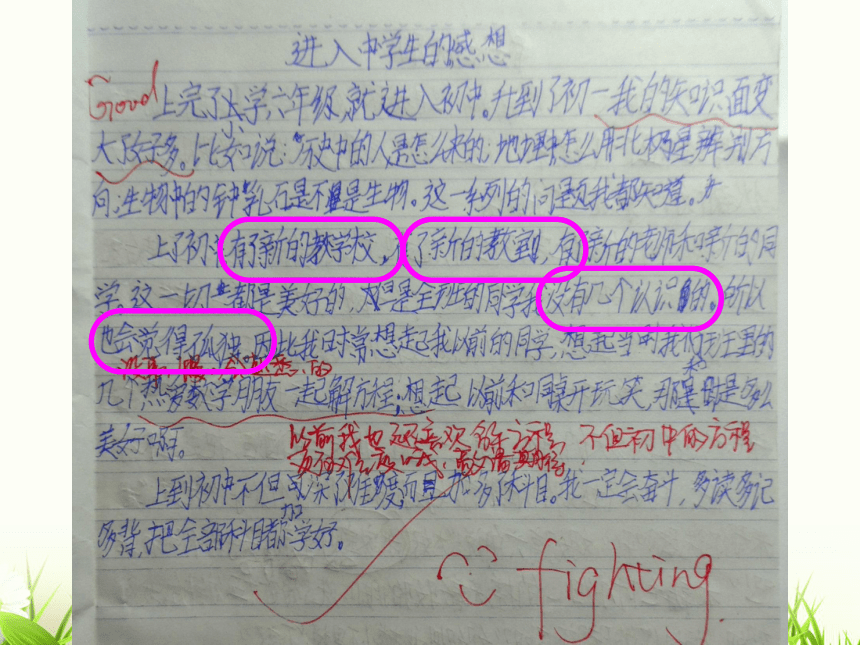 进入中学生的感想
Good 上完了小学六年级,就进入初中。升到了初一我的知识面变
大了好多。比如说:历史中的人是怎么来的;地理中怎么用北极星辨别方
向;生物中的钟乳石是不是生物。这一系列的问题我都知道。
上了初 有了新的教学校,有了新的教室,有了新的老师和新的同
学。这一切都是美好的,但是全班的同学我没有几个认识的。所以
也会觉得孤独,因此我时常想起我以前的同学,想起当时我们班里的
几个热爱数学朋友一起解方程;想起以前和同桌开玩笑,那是多么
美好啊。
以前我也还喜欢解方程,不但初中的方程
上到初中不但加深了难度而且加多了科目。我一定会奋斗,多读多记
多背,把全部科目都学好。
fighting